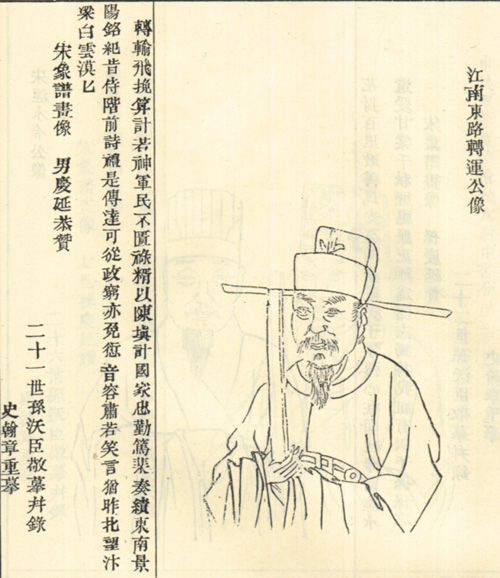 江南東路轉運公像
轉輸飛挽算計若神軍民不匱祿糈以陳塡計國家忠勤篤棐奏績東南景
陽銘紀昔侍階前詩禮是傳達可從政窮亦免愆音容肅若笑言猶昨北望汴
梁白雲漠匕
宋象譜畫像　男慶延恭贊
二十一世孫沃臣敬摹幷錄
史翰章重摹